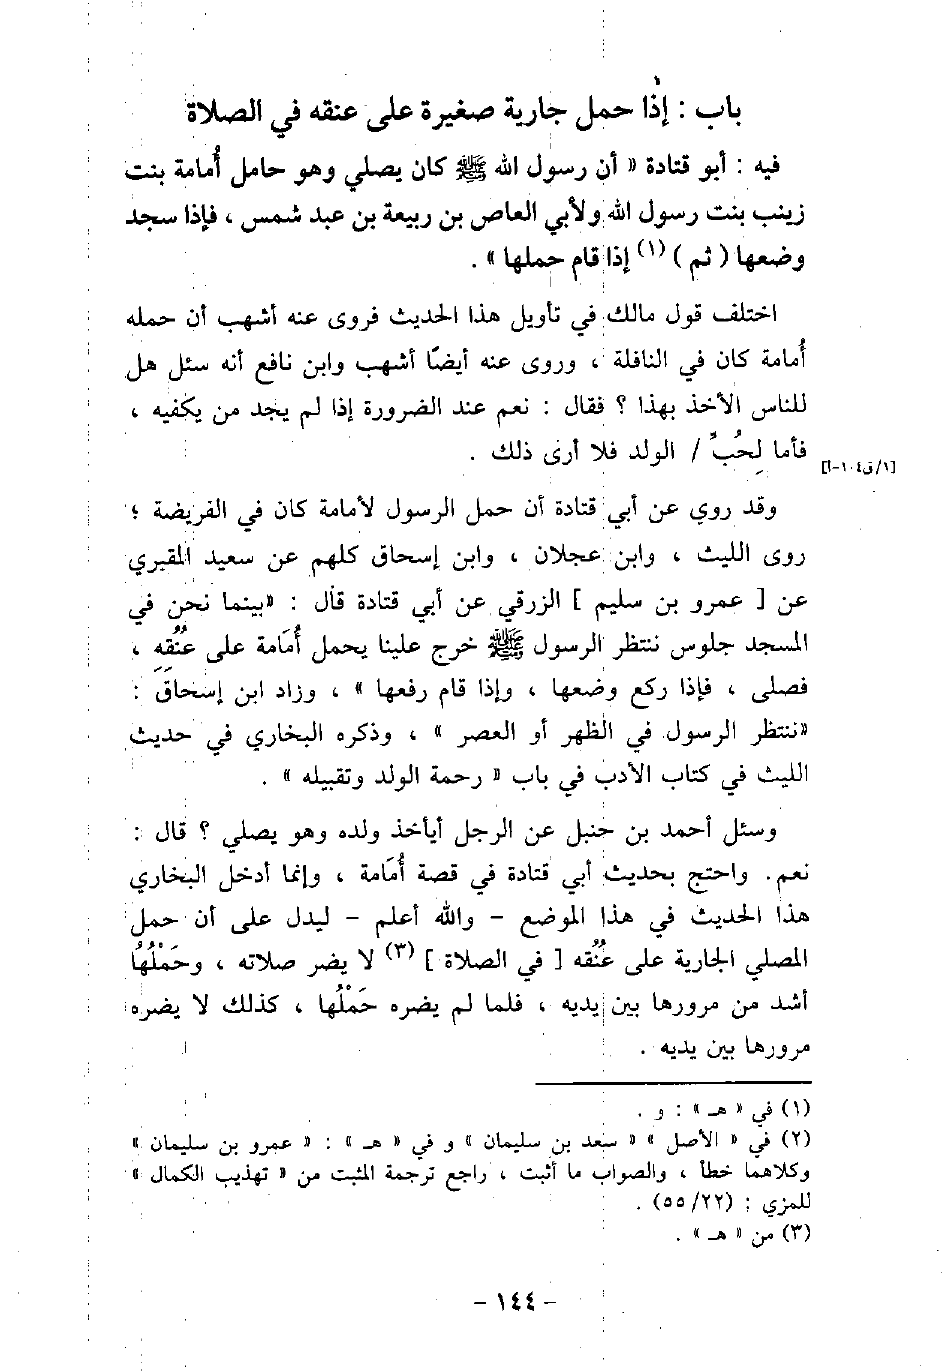 باب : إذا حمل جارية صغيرة على عنقه في الصلاة
فيه : أبو قتادة « أن رسول الله ﷺ كان يصلي وهو حامل أُمامة بنت
زينب بنت رسول الله ولأبي العاص بن ربيعة بن عبد شمس ، فإذا سجد
وضعها ( ثم ) (١) إذا قام حملها » .
اختلف قول مالك في تأويل هذا الحديث فروى عنه أشهب أن حمله
أُمامة كان في النافلة ، وروى عنه أيضًا أشهب وابن نافع أنه سئل هل
للناس الأخذ بهذا ؟ فقال : نعم عند الضرورة إذا لم يجد من يكفيه ،
فأما لِحُبِّ / الولد فلا أرى ذلك .
[١/ق١٠٤-أ]
وقد روي عن أبي قتادة أن حمل الرسول لأمامة كان في الفريضة ؛
روى الليث ، وابن عجلان ، وابن إسحاق كلهم عن سعيد المقبري
عن [ عمرو بن سليم ] الزرقي عن أبي قتادة قال : «بينما نحن في
المسجد جلوس ننتظر الرسول ﷺ خرج علينا يحمل أُمَامة على عُنُقِهِ ،
فصلى ، فإذا ركع وضعها ، وإذا قام رفعها » ، وزاد ابن إِسَحَاق :
«ننتظر الرسول في الظهر أو العصر » ، وذكره البخاري في حديث
الليث في كتاب الأدب في باب « رحمة الولد وتقبيله » .
وسئل أحمد بن حنبل عن الرجل أيأخذ ولده وهو يصلي ؟ قال :
نعم. واحتج بحديث أبي قتادة في قصة أُمَامة ، وإنما أدخل البخاري
هذا الحديث في هذا الموضع - والله أعلم - ليدل على أن حمل
المصلي الجارية على عُنُقه [ في الصلاة ] (٣) لا يضر صلاته ، وحَمْلُهُا
أشد من مرورها بين يديه ، فلما لم يضره حَمْلُها ، كذلك لا يضره
مرورها بين يديه .
(١) في « هـ » : و .
(٢) في « الأصل » « سعد بن سليمان » و في « هـ » : « عمرو بن سليمان »
وكلاهما خطأ ، والصواب ما أثبت ، راجع ترجمة المثبت من « تهذيب الكمال »
للمزي : (٢٢/ ٥٥) .
(٣) من « هـ » .
- ١٤٤ -